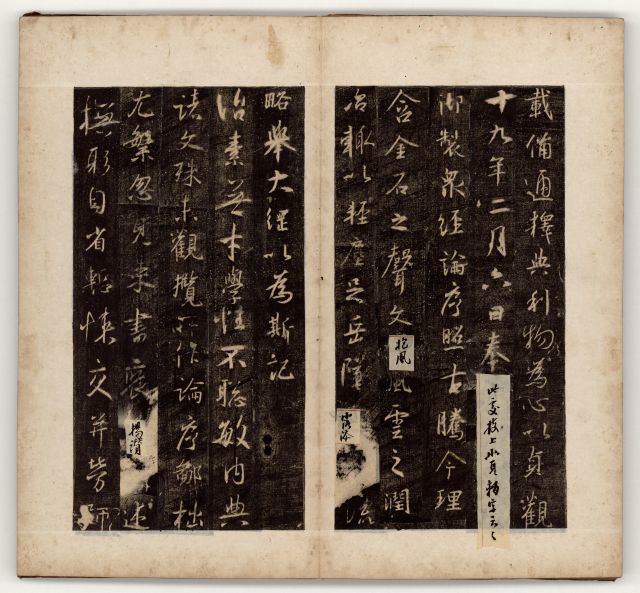 載備通釋典利物為心以貞觀
十九年二月六日奉
御製眾經論序照古騰今理
含金石之聲文
抱風
風雲之潤
治輒以輕塵足岳墜
露添
流
略舉大綱以為斯記
治素無才學性不聰敏內典
諸文殊未觀攬所作論序鄙拙
尤繁忽見來書褒
揚讚
述
撫躬自省慚悚交并勞
師